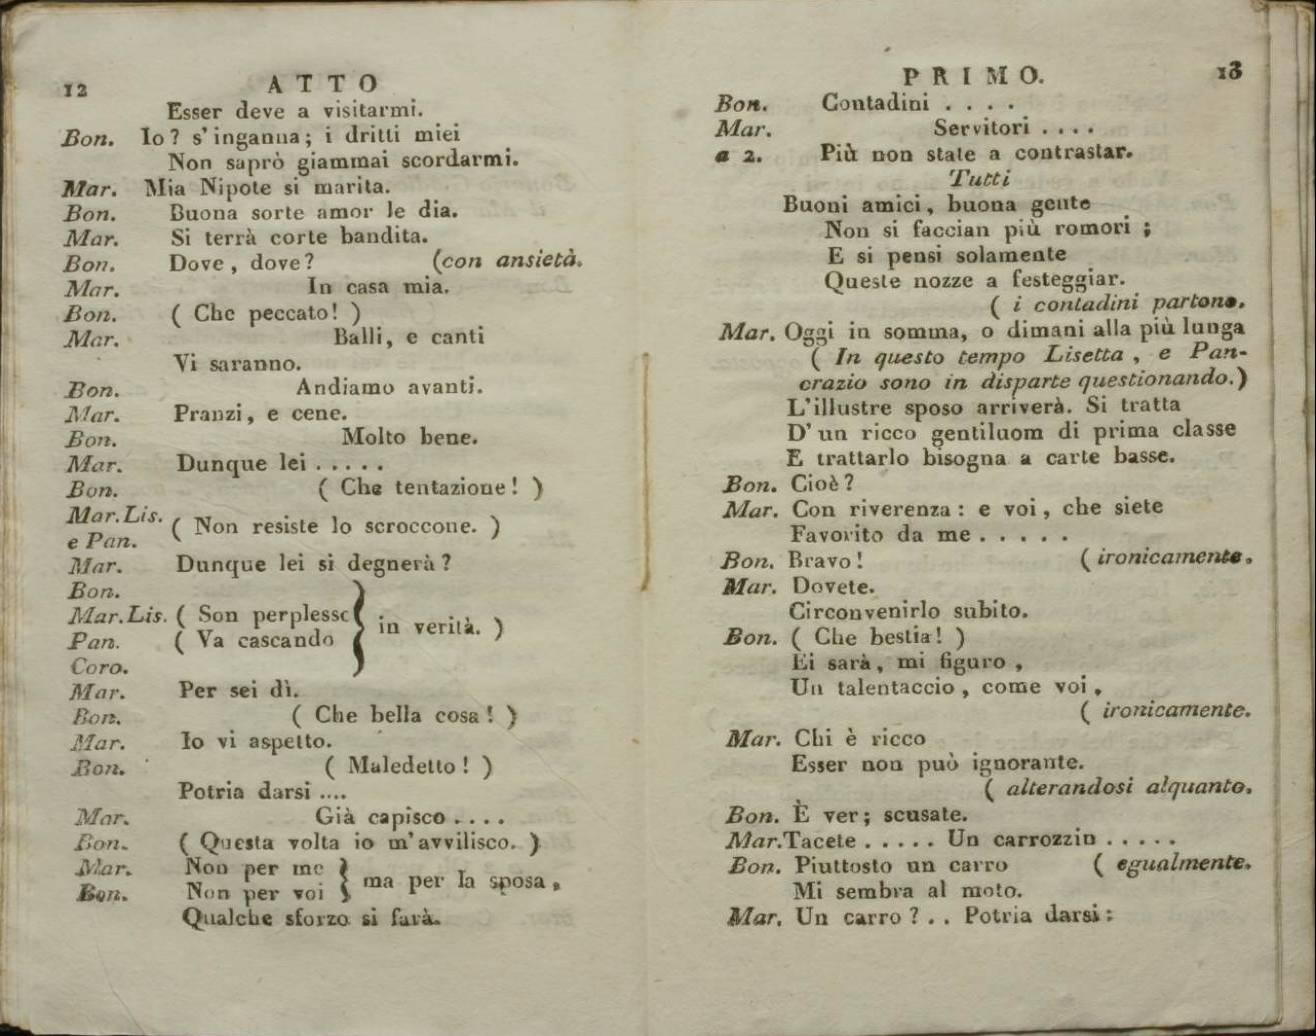 12 ATTO
Esser deve a visitarmi.
Bon. Io? s'inganna; i dritti miei
Non saprò giammai scordarmi.
Mar. Mia Nipote si marita.
Bon. Buona sorte amor le dia.
Mar. Si terrà corte bandita.
Bon. Dove, dove? (con ansietà.
Mar. In casa mia.
Bon. ( Che peccato! )
Mar. Balli, e canti
Vi saranno.
Bon. Andiamo avanti.
Mar. Pranzi, e cene.
Bon. Molto bene.
Mar. Dunque lei . . . . .
Bon. ( Che tentazione! )
Mar. Lis.
e Pan. ( Non resiste lo scroccone. )
Mar. Dunque lei si degnerà?
Bon.
Mar. Lis. ( Son perplesso
Pan. ( Va cascando } in verità. )
Coro.
Mar. Per sei dì.
Bon. ( Che bella cosa! )
Mar. Io vi aspetto.
Bon. ( Maledetto! )
Potria darsi ....
Mar. Già capisco . . . .
Bon. ( Questa volta io m'avvilisco. )
Mar. Non per me
Bon. Non per voi } ma per la sposa,
Qualche sforzo si farà.
PRIMO. 13
Bon. Contadini . . . .
Mar. Servitori . . . .
a 2. Più non state a contrastar.
Tutti
Buoni amici, buona gente
Non si faccian più romori;
E si pensi solamente
Queste nozze a festeggiar.
( i contadini partono.
Mar. Oggi in somma, o dimani alla più lunga
( In questo tempo Lisetta, e Pan-
crazio sono in disparte questionando.)
L'illustre sposo arriverà. Si tratta
D'un ricco gentiluom di prima classe
E trattarlo bisogna a carte basse.
Bon. Cioè?
Mar. Con riverenza: e voi, che siete
Favorito da me . . . . .
Bon. Bravo! ( ironicamente.
Mar. Dovete.
Circonvenirlo subito.
Bon. ( Che bestia! )
Ei sarà, mi figuro,
Un talentaccio, come voi,
( ironicamente.
Mar. Chi è ricco
Esser non può ignorante.
( alterandosi alquanto.
Bon. È ver; scusate.
Mar. Tacete . . . . . Un carrozzin . . . . .
Bon. Piuttosto un carro ( egualmente.
Mi sembra al moto.
Mar. Un carro? . . Potria darsi: